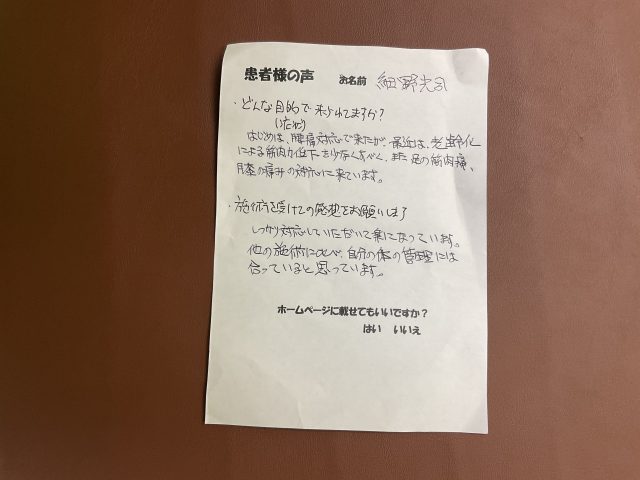 患者様の声 お名前 細野光司
・どんな目的で来られてますか?
(いたか)
はじめは、腰痛対応で来たが、最近は、老齢化
による筋肉力低下を少なくすべく、また足の筋肉痛、
膝の痛みの対応に来ています。
・施術を受けての感想をお願いします
しっかり対応していただいて楽になっています。
他の施術に比べ、自分の体の管理には
合っていると思っています。
ホームページに載せてもいいですか?
はい いいえ